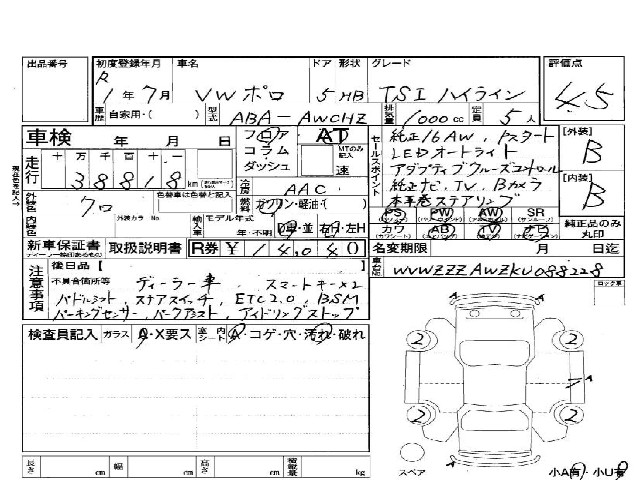 出品番号 初度登録年月 車名 ドア 形状 グレード 評価点
R 1年7月 VW ポロ 5 HB TSI ハイライン 4.5
車歴 自家用・( ) 型式 ABA-AWCHZ 排気量 1000 cc 定員 5 人
車検 年 月 日 フロア コラム ダッシュ AT MTのみ記入 速
走行 十 万 千 百 十 一
38818 km
外装色 クロ 色替車は色替と記入
外装カラーNo
内装色
冷房 AAC
燃料 ガソリン・軽油・( )
輸入車 モデル年式 年・不明 D車・並 右H・左H
セールスポイント
純正16AW、Pスタート
LEDオートライト
アダプティブクルーズコントロール
純正ナビ、TV、Bカメラ
本革巻ステアリング
PS PW AW SR
カワ AB TV ナビ
[外装] B
[内装] B
純正品のみ丸印
新車保証書 取扱説明書 R券 ¥14,040
名変期限 月 日迄
車台No WVWZZZAWZKU088228
注意事項
後日品 [ ]
不具合箇所等 ディーラー車、スマートキー×2
パドルシフト、ステアスイッチ、ETC2.0、BSM
パーキングセンサー、パークアシスト、アイドリングストップ
検査員記入 ガラス A・X要ス 室内シート A・コゲ・穴・汚れ・破れ
ロック車
2 2
A
2 2
A
スペア
小A有・小U有
長さ cm 幅 cm 高さ cm 積載量 kg